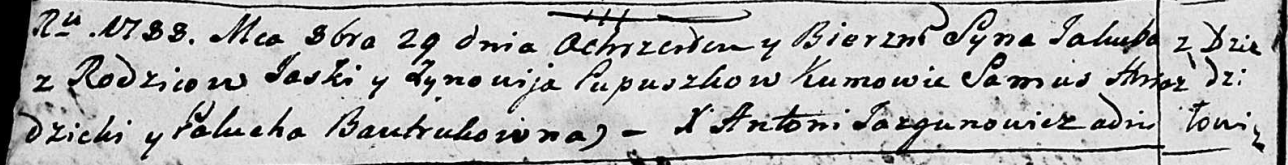 Ru .1788. Mca 8bra 29 dnia Ochrzciłem y Bierzm Syna Jakuba z Dzie
z Rodzicow Jaski y Zynowija Pupuszkow Kumowie Samus dzi
dzicki y Pałucha Bautrukowna) – X Antoni Jazgunowicz adm łowic